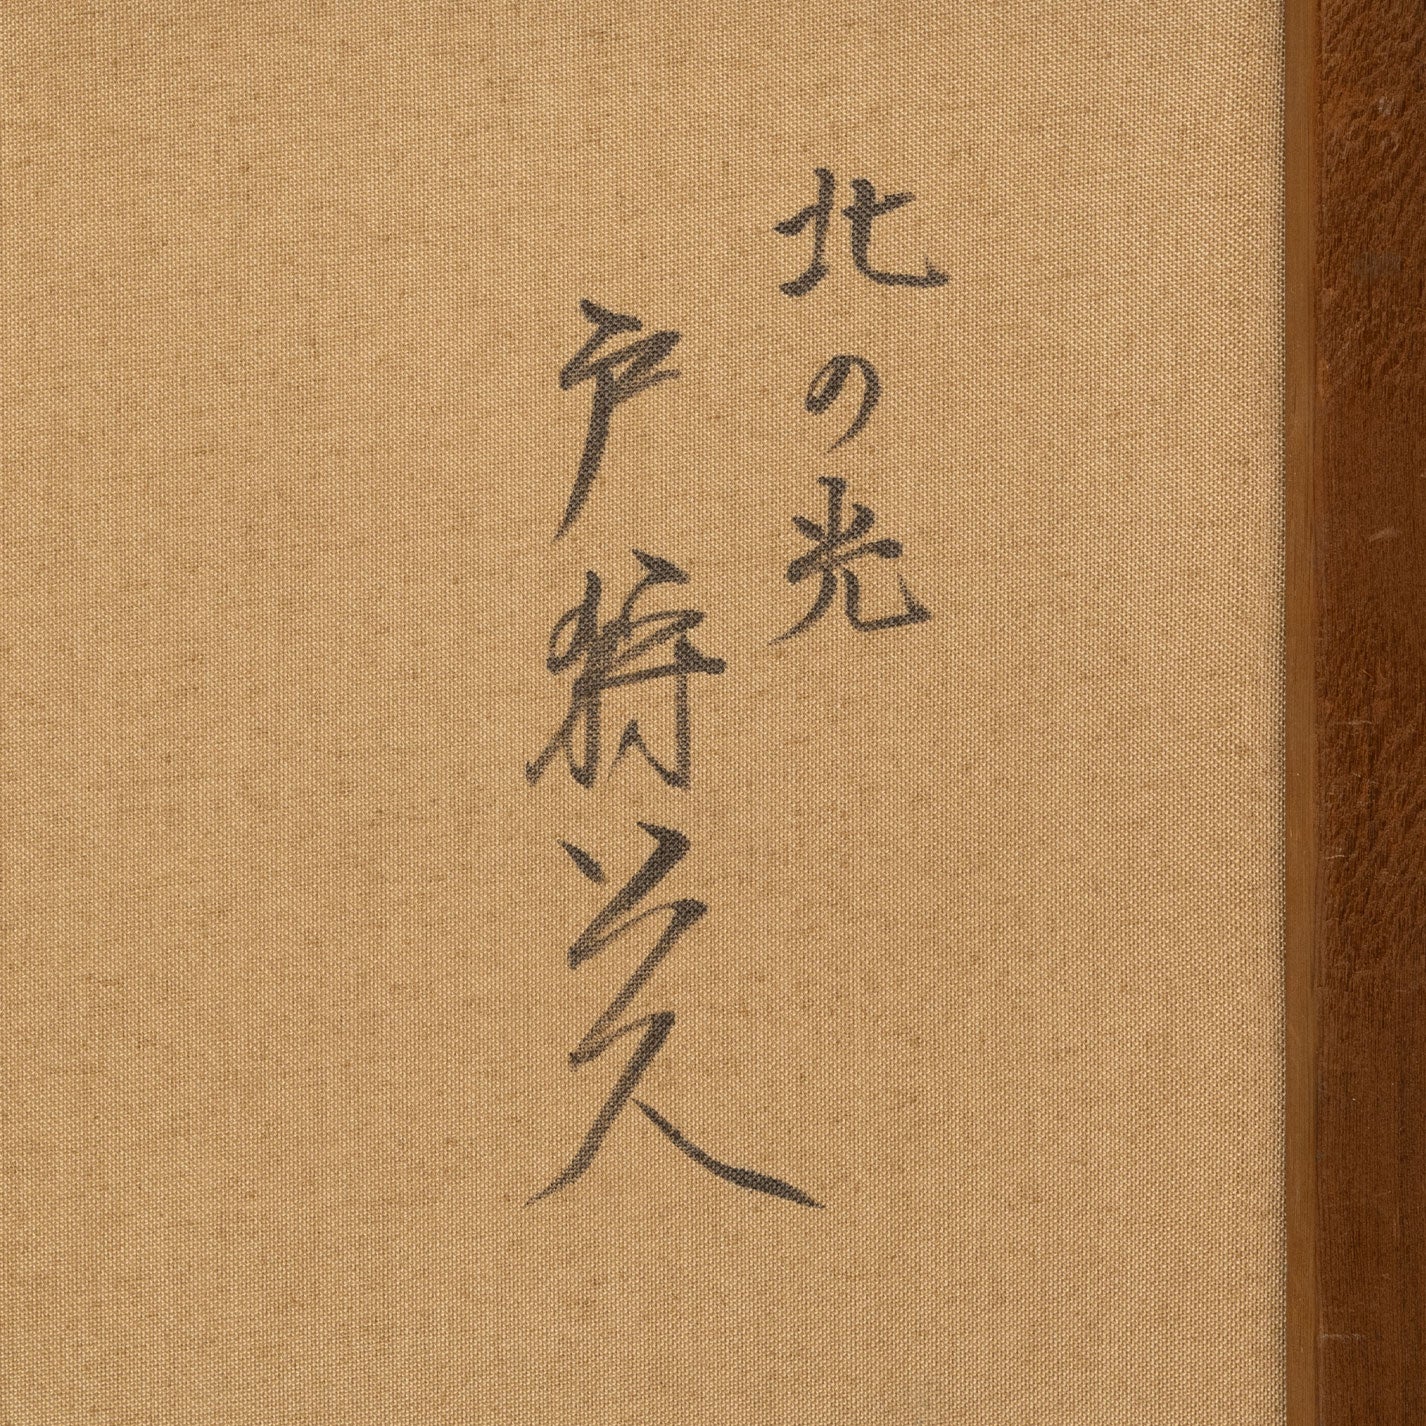 北の光
戸狩公久